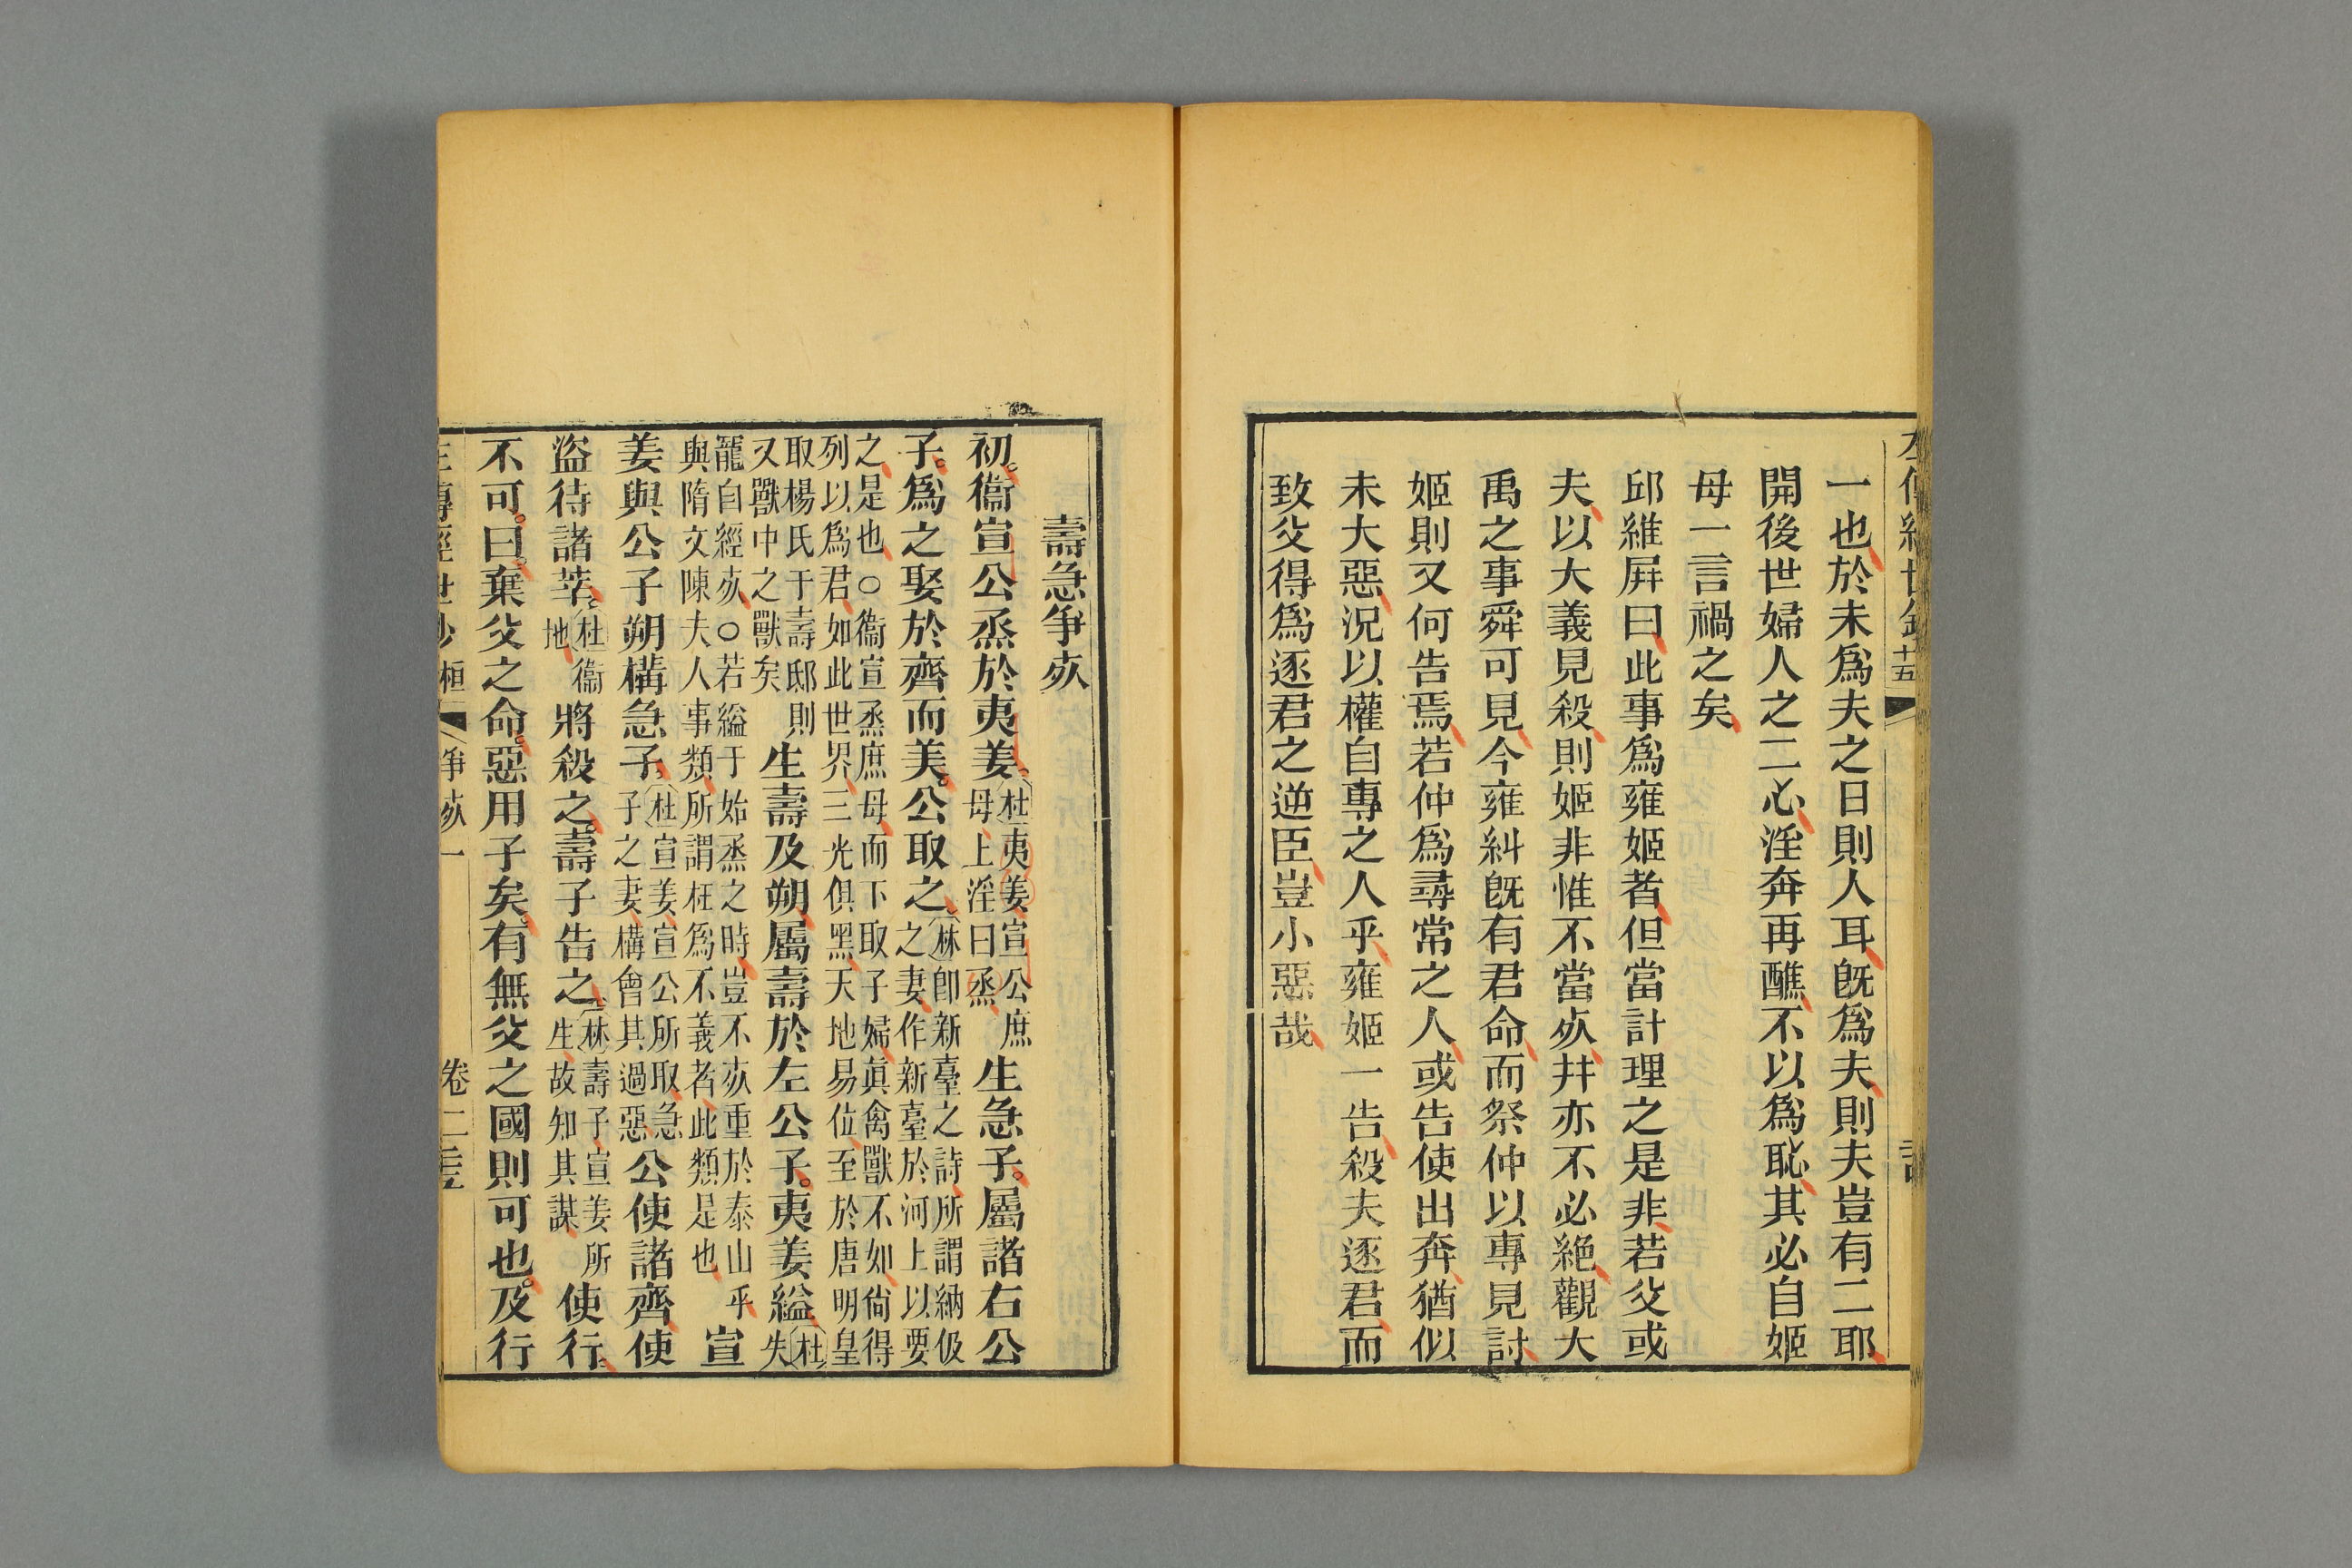 一也於未爲夫之日則人耳旣爲夫則夫豈有二耶
開後世婦人之二心淫奔再醮不以爲恥其必自姬
母一言禍之矣
邱維屛曰此事爲雍姬者但當計理之是非若父或
夫以大義見殺則姬非惟不當㱙并亦不必絶觀大
禹之事舜可見今雍糾旣有君命而祭仲以專見討
姬則又何告焉若仲爲尋常之人或告使出奔猶似
未大惡況以權自專之人乎雍姬一告殺夫逐君而
致父得爲逐君之逆臣豈小惡哉
壽急爭㱙
初衞宣公烝於夷姜杜夷姜宣公庶母上淫曰烝生急子屬諸右公
子爲之娶於齊而美公取之林卽新臺之詩所謂納伋之妻作新臺於河上以要
之是也○衞宣烝庶母而下取子婦眞禽獸不如尙得列以爲君如此世界三光俱黑天地易位至於唐明皇
取楊氏于壽邸則又獸中之獸矣生壽及朔屬壽於左公子夷姜縊杜失
寵自經㱙○若縊于始烝之時豈不㱙重於泰山乎與隋文陳夫人事類所謂枉爲不義者此類是也宣
姜與公子朔構急子杜宣姜宣公所取急子之妻構會其過惡公使諸齊使
盜待諸莘杜衞地將殺之壽子告之林壽子宣姜所生故知其謀使行
不可曰棄父之命惡用子矣有無父之國則可也及行
桓
爭㱙一
卷二